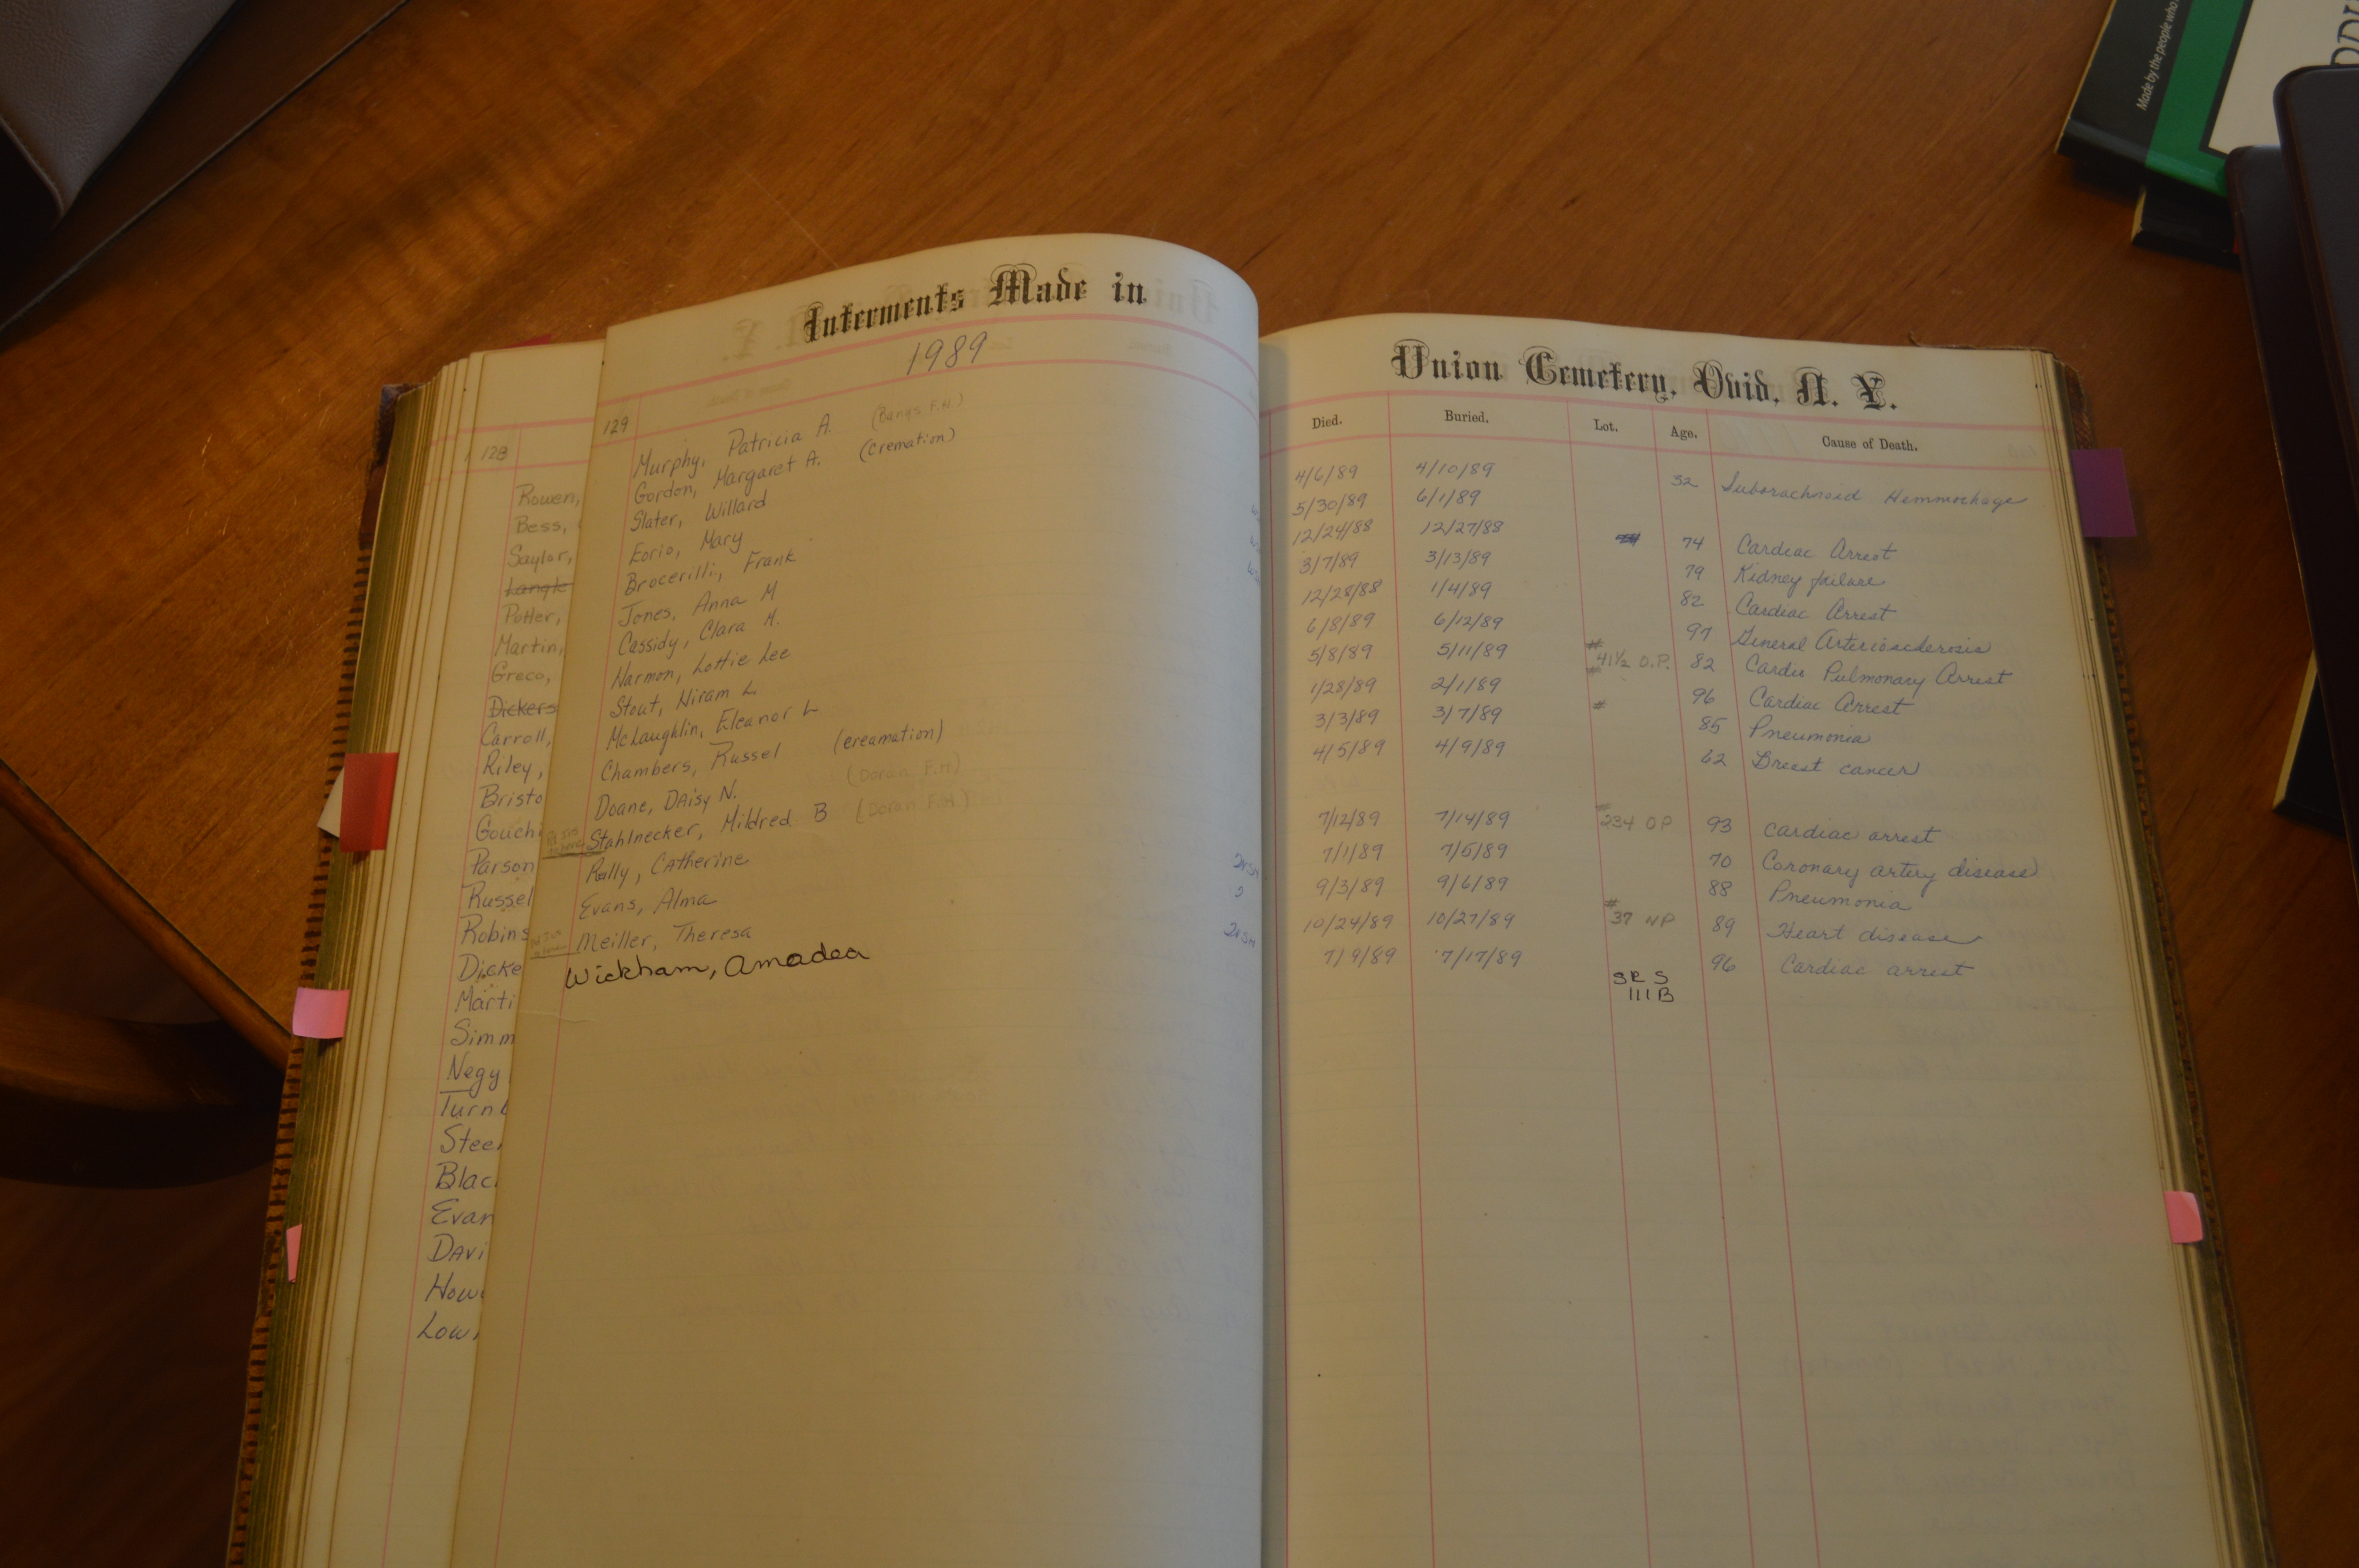 Made by the people who
Interments Made in
1989
128
Rowen,
Bess,
Saylor,
Langk
Potter,
Martin,
Greco,
Dickers
Carroll,
Riley,
Bristo
Gouchi
Parson
Russel
Robins
Dicke
Marti
Simm
Negy
Turnb
Stee
Blac
Evan
Davi
How
Low
129
Murphy, Patricia A. (Bangs F.H.)
Gordon, Margaret A. (cremation)
Slater, Willard
Eorio, Mary
Brocerilli, Frank
Jones, Anna M
Cassidy, Clara H.
Harmon, Lottie Lee
Stout, Hiram L.
McLaughlin, Eleanor L
Chambers, Russel (creamation)
Doane, Daisy N. (Doran F.H)
Stahlnecker, Mildred B (Doran F.H)
Rally, Catherine
Evans, Alma
Meiller, Theresa
Wickham, Amadea
Union Cemetery, Ovid, N. Y.
Died. Buried. Lot. Age. Cause of Death.
4/6/89 4/10/89 32 Suborachnoid Hemmorhage
5/30/89 6/1/89
12/24/88 12/27/88 74 Cardiac Arrest
3/7/89 3/13/89 79 Kidney failure
12/28/88 1/4/89 82 Cardiac Arrest
6/8/89 6/12/89 97 General Arteriosclerosis
5/8/89 5/11/89 # 41½ O.P. 82 Cardio Pulmonary Arrest
1/28/89 2/1/89 # 96 Cardiac Arrest
3/3/89 3/7/89 # 85 Pneumonia
4/5/89 4/9/89 62 Breast cancer
7/12/89 7/14/89 # 234 OP 93 cardiac arrest
7/1/89 7/5/89 70 Coronary artery disease
9/3/89 9/6/89 88 Pneumonia
10/24/89 10/27/89 # 37 NP 89 Heart disease
7/9/89 7/17/89 96 Cardiac arrest
SRS
111B